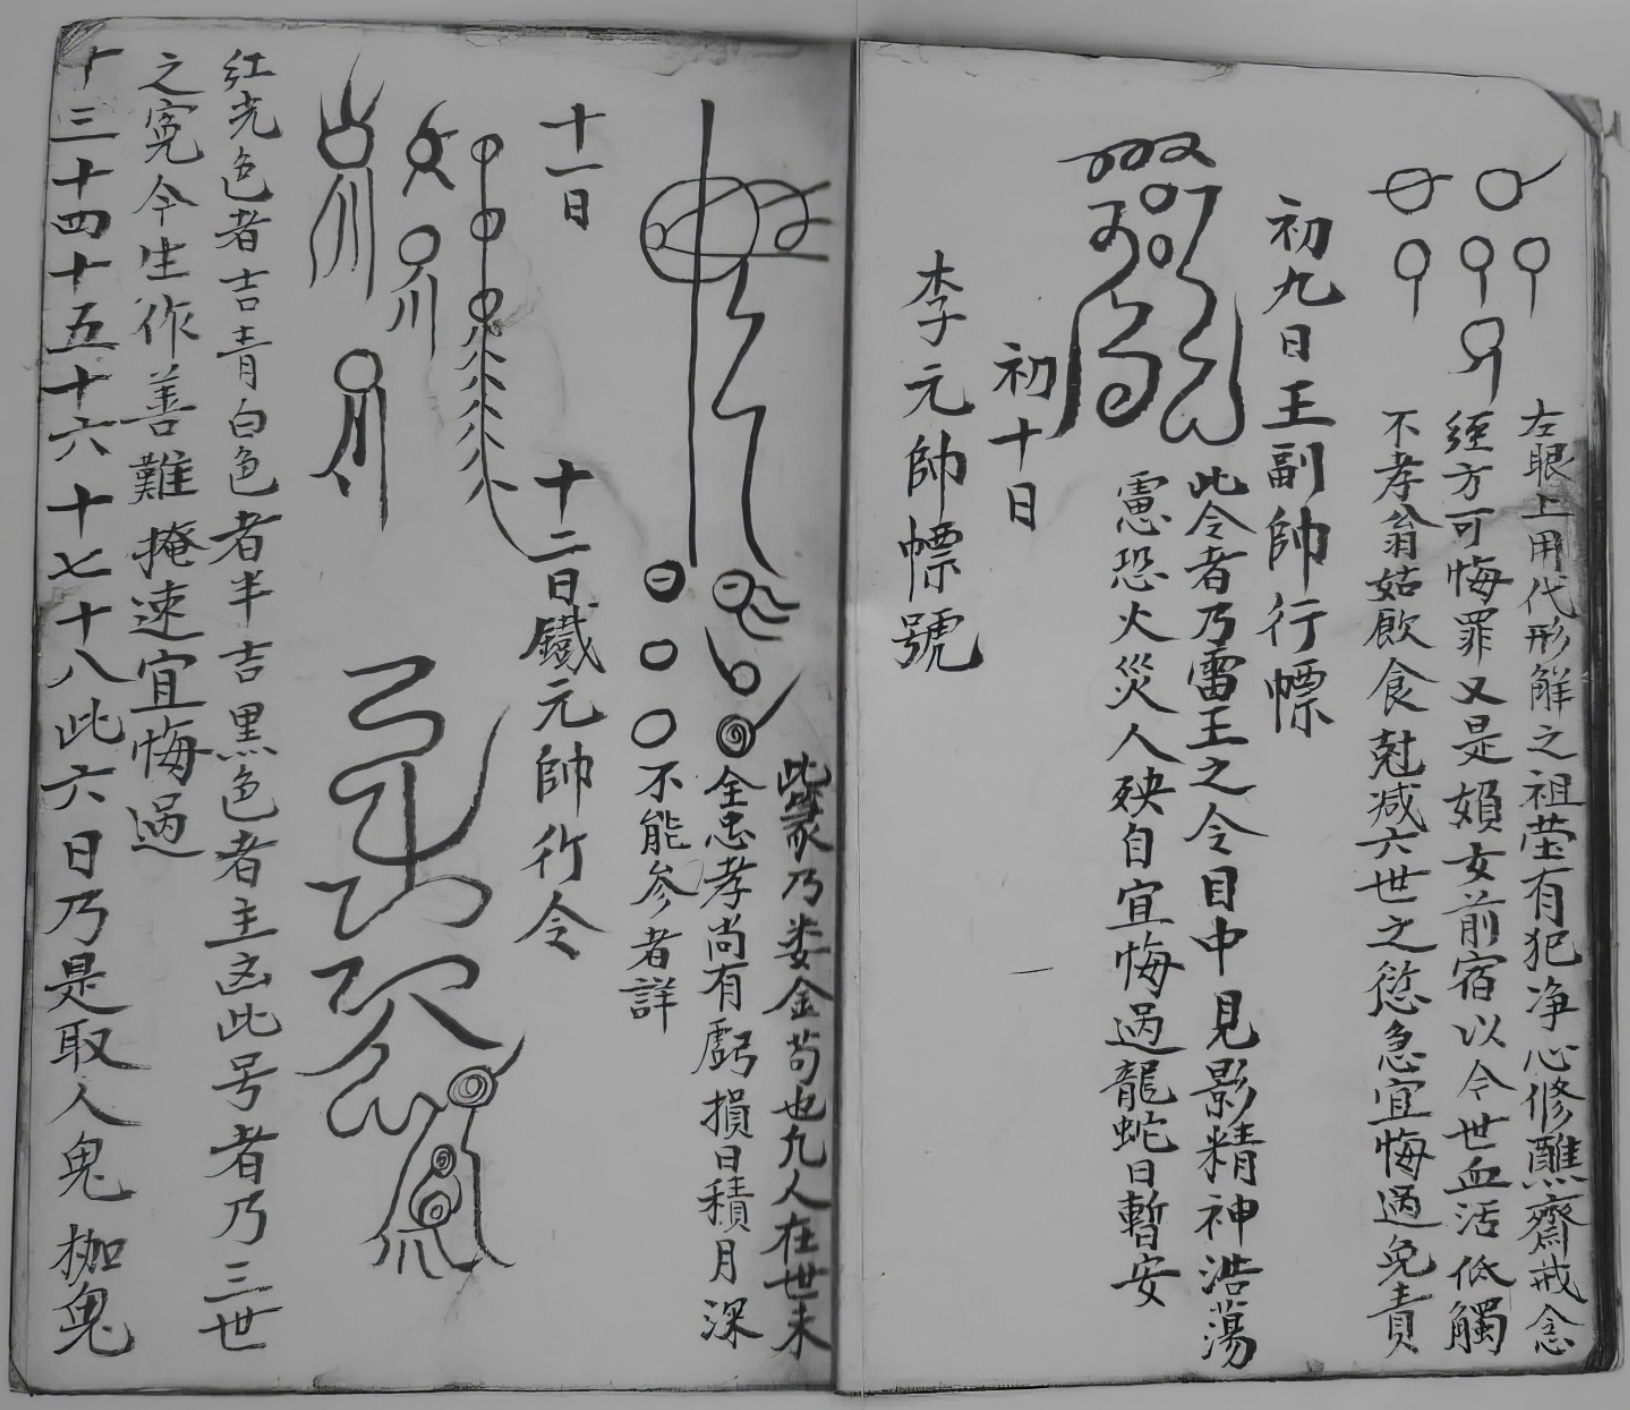 左眼上用代形解之祖茔有犯净心修醮齋戒念
經方可悔罪又是頞女前宿以今世血活低觸
不孝翁姑飲食尅减六世之愆急宜悔過免責
初九日王副帥行幖
此令者乃雷王之令目中見影精神浩蕩
慮恐火災人殃自宜悔過龍蛇日暫安
初十日
李元帥幖號
此篆乃娄金茍也九人在世未
全忠孝尚有虧損日積月深
不能参者詳
十一日
十二日鐵元帥行令
红光色者吉青白色者半吉黑色者主凶此号者乃三世
之寃今生作善難掩速宜悔過
十三十四十五十六十七十八此六日乃是取人鬼枷鬼